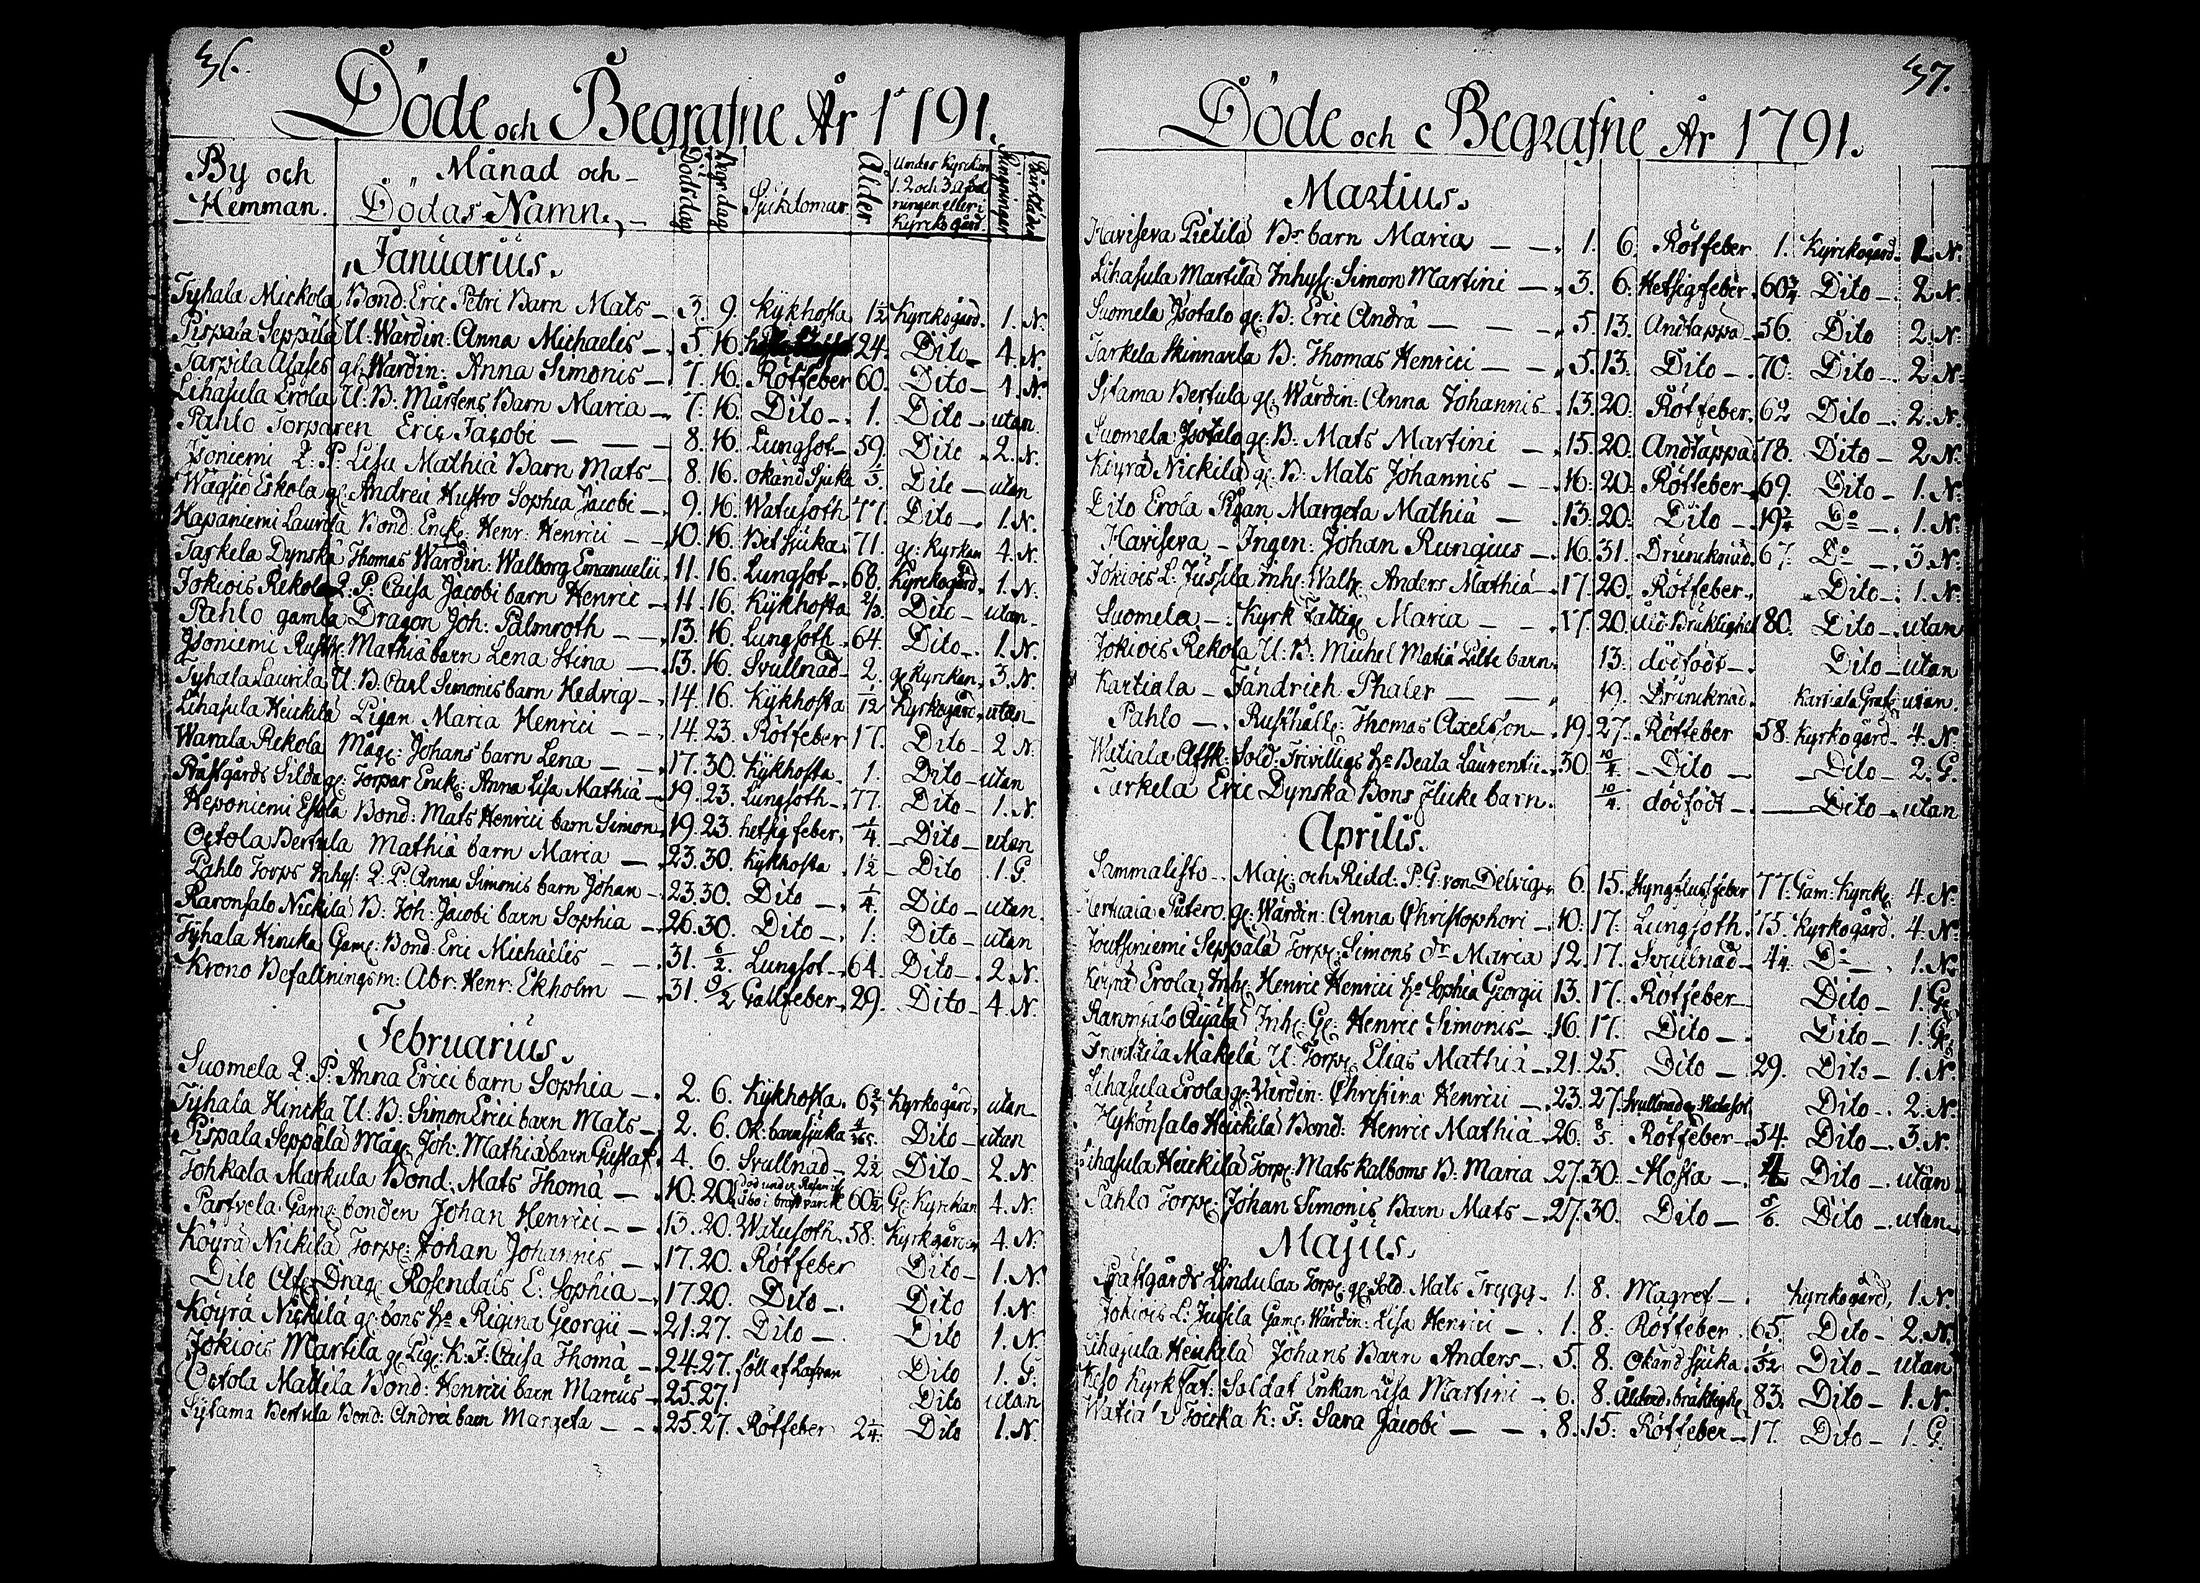 36.
Döde och Begrafne År 1791.
By och Hemman. Månad och Dödas Namn. Dödsdag Begr:dag Sjukdomar Ålder Under Kyrckan 1. 2 och 3 afdelningen eller i Kyrckogård. Ringningar Bårkläden
Januarius.
Tyhala Mickola Bond: Eric Petri Barn Mats 3. 9. Kykhosta 1½ Kyrckogård. 1. N.
Pispala Seppälä U: Wärdin: Anna Michaelis 5. 16. 24. Dito 4. N.
gl: Wärdin: Anna Simonis 7. 16. Rötfeber 60. Dito 4. N.
Lihasula Erola U: B: Mårtens Barn Maria 7. 16. Dito 1. Dito utan
Pahlo Torparen Eric Jacobi 8. 16. Lungsot 59. Dito 2. N.
Isoniemi Q: P: Lisa Mathiä Barn Mats 8. 16. okänd Sjuka Dito utan
Eskola gl: Andreæ Hustro Sophia Jacobi 9. 16. Watusoth 77. Dito 1. N.
Hapaniemi Laurila Bond: Enck: Henr: Henrici 10. 16. Betsjuka 71. gl: Kyrkan 4. N.
Tarkela Dynskä Thomas Wärdin: Walborg Emanuelis 11. 16. Lungsot 68. Kyrckogård 1. N.
Jokiois Rekola Q: P: Caisa Jacobi barn Henric 11. 16. Kykhosta 2/3. Dito utan
Pahlo gamla Dragon Joh: Palmroth 13. 16. Lungsoth 64. Dito 1. N.
Isoniemi Rusth: Mathiä barn Lena Stina 13. 16. Svullnad 2. gl Kyrckan 3. N.
Tyhala Laurila U: B: Carl Simonis barn Hedvig 14. 16. Kykhosta 1/12 Kyrkogård utan
Lihasula Heickilä Pigan Maria Henrici 14. 23. Rötfeber 17. Dito 2 N.
Warala Rekola Måg: Johans barn Lena 17. 30. Kykhosta 1. Dito utan
Prästgårds Silda gl: Torpar Enk: Anna Lisa Mathiä 19. 23. Lungsoth 77. Dito 1. N.
Heponiemi Bond: Mats Henrici barn Simon 19. 23. hetsig feber 1/4 Dito utan
Ortola Bertula Mathiä barn Maria 23. 30. Kykhosta 1½ Dito 1. G
Pahlo Torps Inhys: Q: P: Anna Simonis barn Johan 23. 30. Dito 1/4. Dito utan.
Raronsalo Nickilä B: Joh: Jacobi barn Sophia 26. 30. Dito 1. Dito utan
Tyhala Hincka Gam: Bond: Eric Michaelis 31. 6/2. Lungsot 64. Dito 2. N.
Krono Befallningsm: Abr: Henr: Ekholm 31. 9/2 Gallfeber 29. Dito 4. N.
Februarius.
Suomela Q: P: Anna Erici barn Sophia 2. 6. Kykhosta Kyrkogård utan
Tyhala Hincka U: B: Simon Erici barn Mats 2. 6. Ok: barnsjuka Dito utan
Pispala Seppälä Måg: Joh: Mathiä barn Gustaf 4. 6. Svullnad 2½ Dito 2. N.
Johkala Markula Bond: Mats Thomä 10. 20. 60½ Gl Kyrkan 4. N.
Gam: bonden Johan Henrici 13. 20. Watusoth 58. Kyrkogården 4. N.
Köyrä Nickilä Torp: Johan Johannis 17. 20. Rötfeber Dito 1. N.
Dito Afs: Drag: Rosendals E: Sophia 17. 20. Dito Dito 1. N.
Köyrä Nickilä gl: bons h:o Regina Georgii 21. 27. Dito Dito 1. N.
Jokiois Martila gl Lig: K: F: Caisa Thomä 24. 27. Dito 1. G.
Ortola Mattila Bond: Henrici barn Marcus 25. 27. Dito utan
Sytama Bertula Bond: Andreä barn Margeta 25. 27. Rötfeber 2¼ Dito 1. N.
37.
Döde och Begrafne År 1791.
Martius.
Haviseva Pietilä B:s barn Maria 1. 6. Rötfeber 1. Kyrckogård 1. N.
Lihasula Martila Inhys: Simon Martini 3. 6. Hetsigfeber 60¾ Dito 2 N.
Suomela Isotalo gl: B: Eric Andrä 5. 13. Andtäppa 56. Dito 2. N.
Tarkela Skinnarla B: Thomas Henrici 5. 13. Dito 70. Dito 2. N.
Sytama Bertula gl: Wärdin: Anna Johannis 13. 20. Rötfeber. 62 Dito 2. N.
Suomela Isotalo gl: B: Mats Martini 15. 20. Andtäppa 78. Dito 2. N.
Köyrä Nickilä gl: B: Mats Johannis 16. 20. Rötfeber 69. Dito 1. N.
Dito Erola Pigan Margeta Mathiä 13. 20. Dito 19¾ D:o 1. N.
Haviseva Ingen: Johan Rungius 16. 31. Druncknad. 67. D:o 3. N.
Jokiois L: Jussila Inh: Walh: Anders Mathiä 17. 20. Rötfeber. Dito 1. N.
Suomela Kyrk Fattig Maria 17. 20. Åld: Bräklighet 80. Dito utan
Jokiois Rekola U: B: Michel Matiä Lilte barn. 13. dödfödt Dito utan
Kartiala Fändrich Phaler 19. Druncknad. Kartiala Graf utan.
Pahlo Rusthåll: Thomas Axelsson 19. 27. Rötfeber 58. Kyrkogård 4. N
Watiala Afsk: Sold: Frivilligs h:o Beata Laurentii 30. 10/4. Dito Dito 2. G.
Tarkela Eric Dynskä Bons flicke barn. 10/4. dödfödt Dito utan
Aprilis.
Sammalisto Maj: och Ridd: P. G. von Delvig 6. 15. 77. Gam: Kyrck: 4. N.
Putero gl: Wärdin: Anna Christophori 10. 17. Lungsoth. 75. Kyrkogård. 4. N.
Joutsiniemi Seppälä Torp: Simons d:r Maria 12. 17. Svullnad D:o 1. N.
Köyrä Erola Inh: Henric Henrici h:o Sophia Georgii 13. 17. Rötfeber Dito 1. G
Raronsalo Äijälä Inh: Gl: Henric Simonis 16. 17. Dito Dito 1. G
Mäkelä U: Torp: Elias Mathiä 21. 25. Dito 29. Dito 1. N.
Lihasula Erola gl: Wärdin: Christina Henrici 23. 27. Svullnad Dito 2. N
Hykönsalo Heickilä Bond: Henric Mathiä 26. 8/5. Rötfeber 34. Dito 3. N.
Lihasula Heickilä Torp: Mats Kalboms B: Maria 27. 30. Hosta Dito utan
Pahlo Torp: Johan Simonis Barn Mats 27. 30. Dito 5/6. Dito utan
Majus.
Prästgårds Lindulan Torp: gl: Sold. Mats Trygg 1. 8. Magref Kyrckogård 1. N.
Jokiois L: Jussila Gam: Wärdin: Lisa Henrici 1. 8. Rötfeber 65. Dito 2. N.
Lihasula Heickilä Johans Barn Anders 5. 8. Okänd sjuka 1/52 Dito utan
Kyrk Fat: Soldat Enkan Lisa Martini 6. 8. Ålderd: bräklighet 83. Dito 1. N.
K: F: Sara Jacobi 8. 15. Rötfeber 17. Dito 1. G.